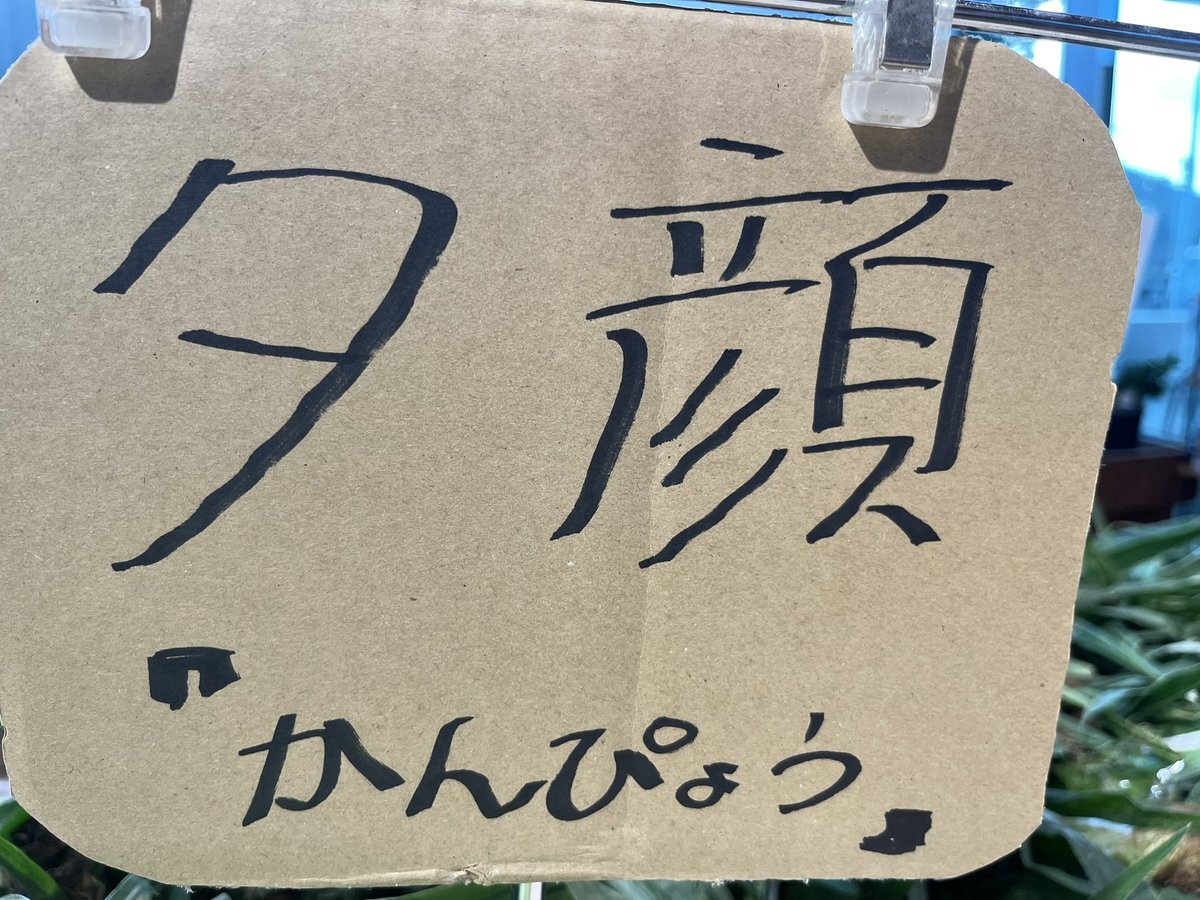 夕顔
『かんぴょう』